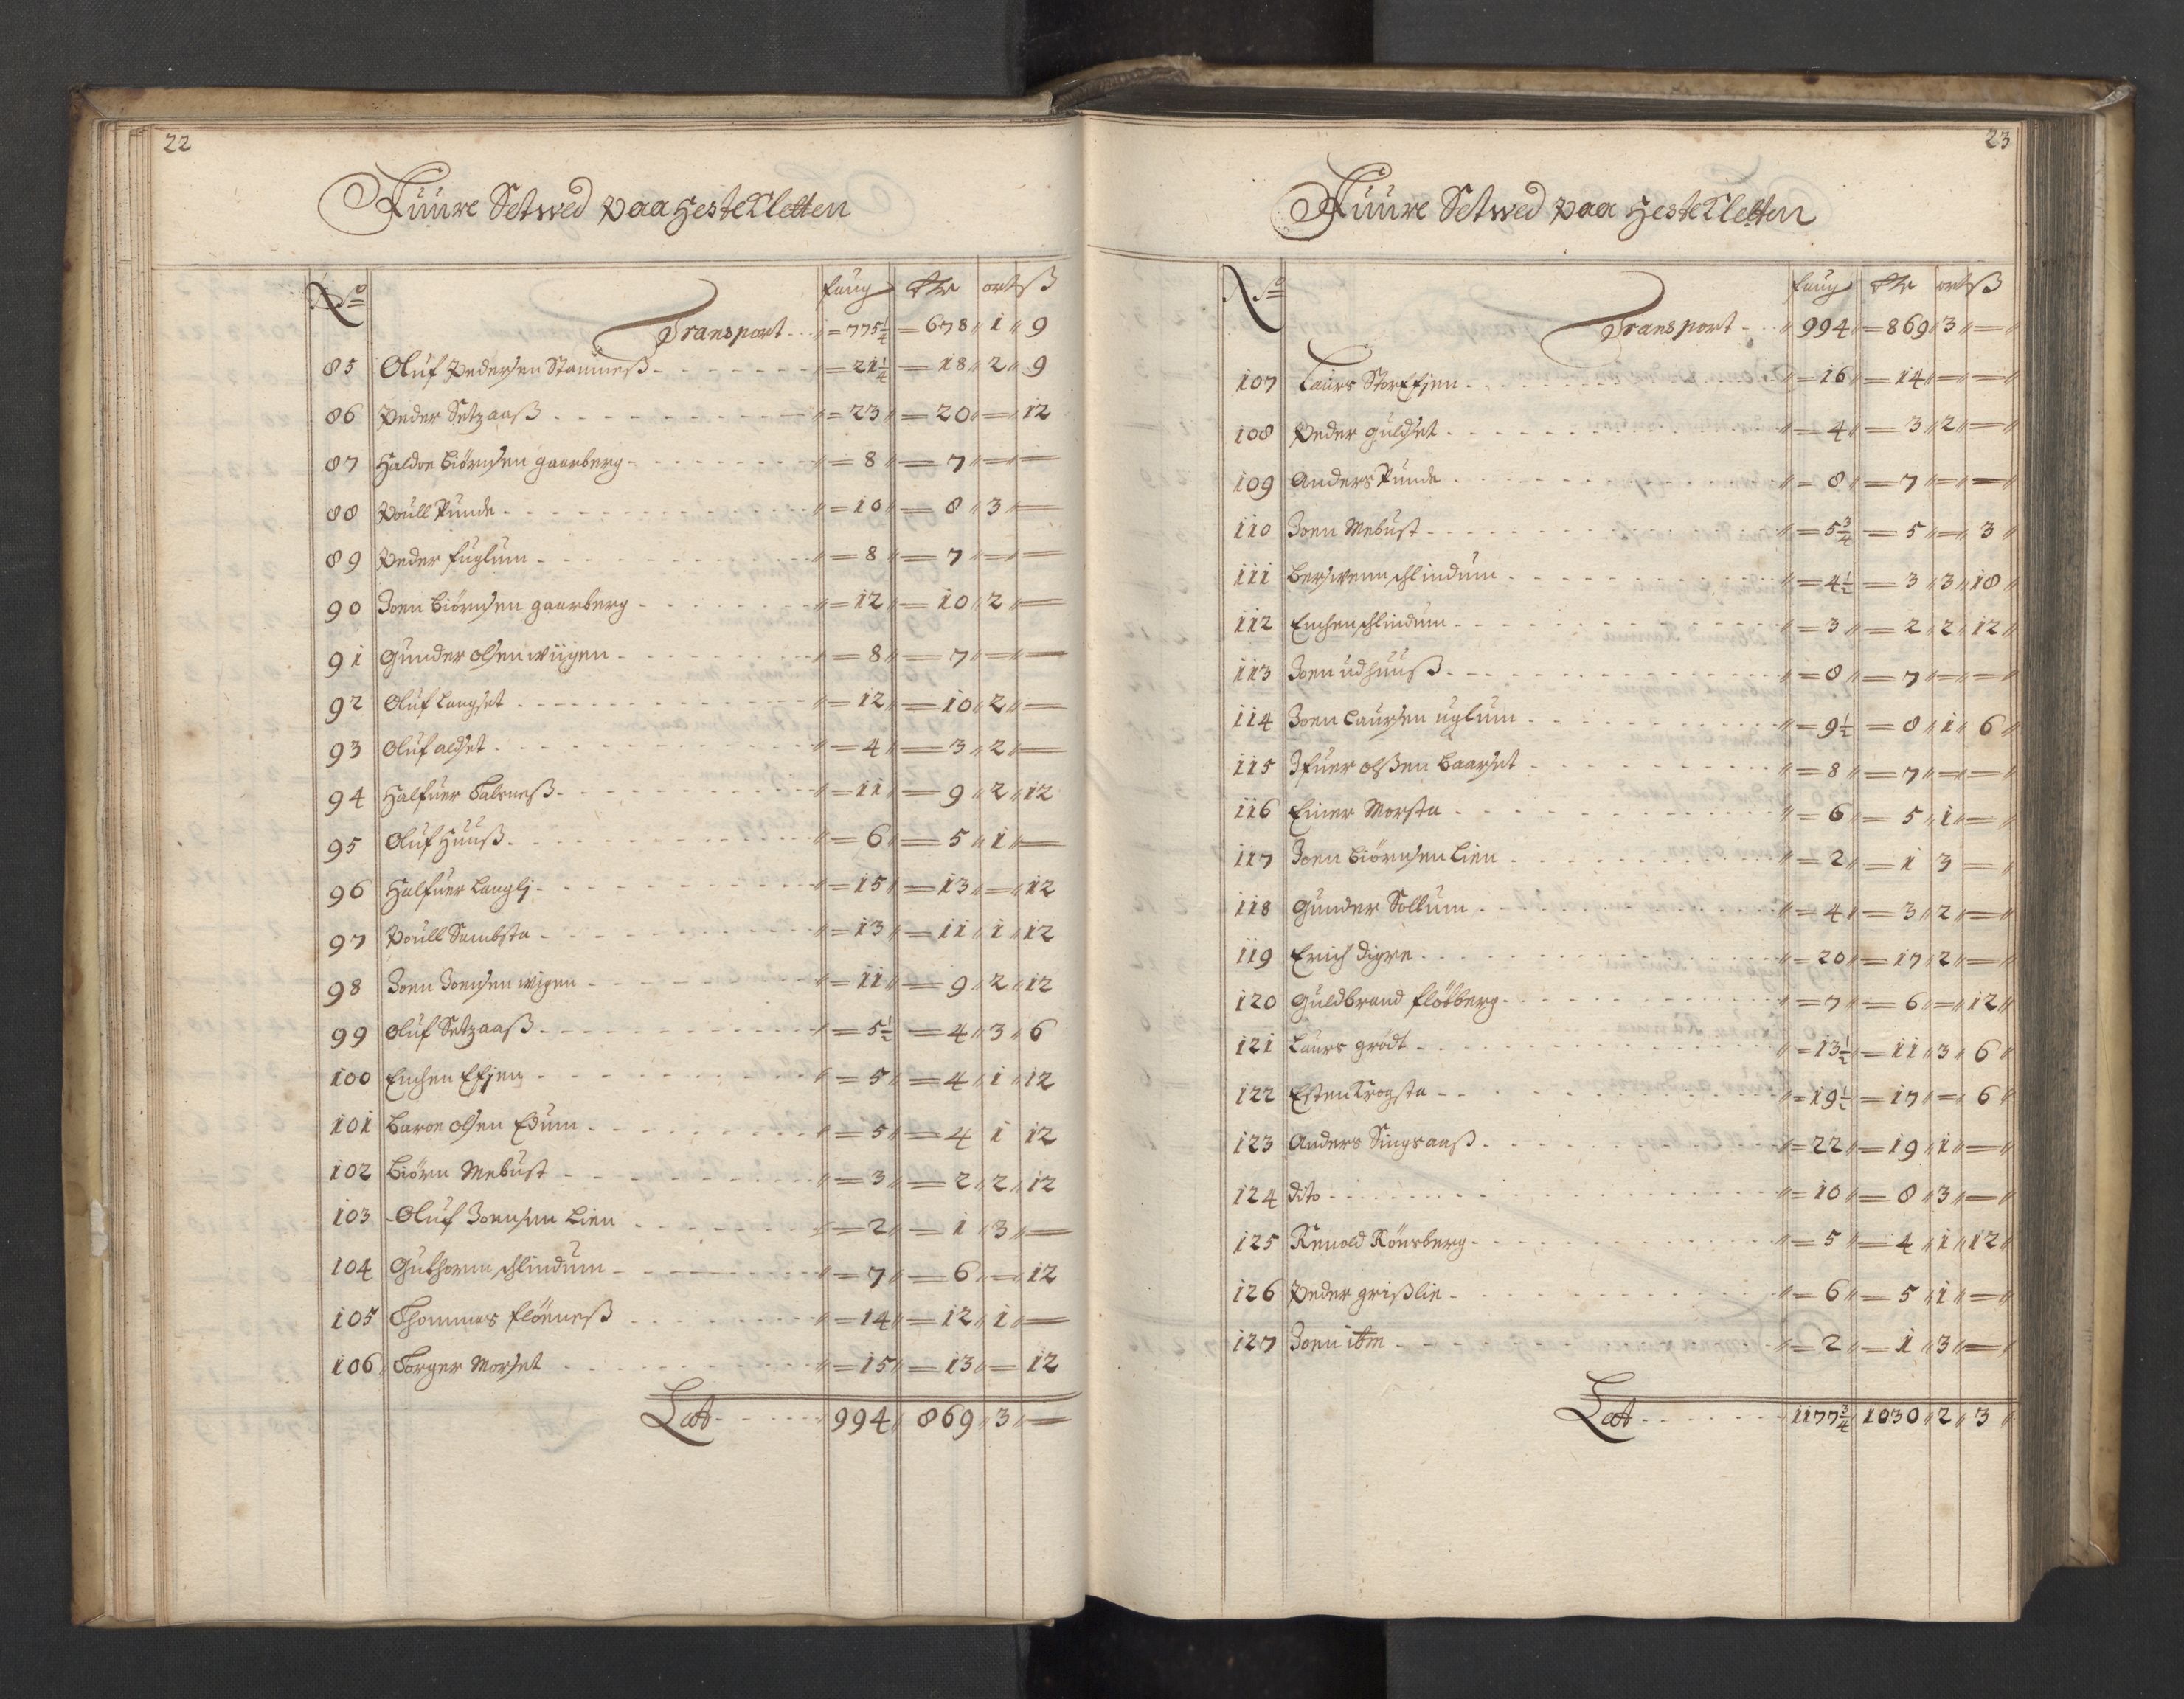 22
Fuure Setwed paa Hestekletten
No faug Rdr ort ß
Transport - - " = 775 1/4 = 678 " 1 " 9
85 Oluf Pedersen Stamneß - - - " = 21 1/4 = 18 " 2 " 9
86 Peder Setzaaß - - - " = 23 " = 20 " = " 12
87 Haldor Biörnsen gaarberg - - - " = 8 " = 7 " = " =
88 Poull Kunde - - - " = 10 " = 8 " 3 " =
89 Peder fuglum - - - " = 8 " = 7 " = " =
90 Joen Biörnsen gaarberg - - - " = 12 " = 10 " 2 " =
91 Gunder olsen wiigen - - - " = 8 " = 7 " = " =
92 Oluf Langset - - - " = 12 " = 10 " 2 " =
93 Oluf aldset - - - " = 4 " = 3 " 2 " =
94 Halfuer Talsneß - - - " = 11 " = 9 " 2 " 12
95 Oluf Huuß - - - " = 6 " = 5 " 1 " =
96 Halfuer Langlj - - - " = 15 " = 13 " = " 12
97 Poull Sambsta - - - " = 13 " = 11 " 1 " 12
98 Joen Joensen wigen - - - " = 11 " = 9 " 2 " 12
99 Oluf Setzaaß - - - " = 5 1/2 = 4 " 3 " 6
100 Enchen Efjen - - - " = 5 " = 4 " 1 " 12
101 Baroe olsen Edum - - - " = 5 " = 4 1 12
102 Biörn Mebust - - - " = 3 " = 2 " 2 " 12
103 Oluf Joensen Lien - - - " = 2 " = 1 " 3 " =
104 Guthorm schlindum - - - " = 7 " = 6 " = " 12
105 Thommas flöeneß - - - " = 14 " = 12 " 1 " =
106 Torger Morset - - - " = 15 " = 13 " = 12
Lat - - - 994 " 869 " 3 " =
23
Fuure Setwed paa Hestekletten
No faug Rdr ort ß
Transport - - " 994 " = 869 " 3 " = "
107 Laurs Storefjen - - - " = 16 " = 14 " = " = "
108 Peder guldset - - - " = 4 " = 3 " 2 " = "
109 Anders Kunde - - - " = 8 " = 7 " = " = "
110 Joen Mebust - - - " = 5 3/4 = 5 " = " 3 "
111 Berswenn schlindum - - - " = 4 1/2 = 3 " 3 " 18 "
112 Enchen schlindum - - - " = 3 " = 2 " 2 " 12 "
113 Joen udhuuß - - - " = 8 " = 7 " = " = "
114 Joen Laursen uglum - - - " = 9 1/2 = 8 " 1 " 6 "
115 Ifuer olßen Baarset - - - " = 8 " = 7 " = " = "
116 Einer Morsta - - - " = 6 " = 5 " 1 " = "
117 Joen Biörnsen Lien - - - " = 2 " = 1 3 = "
118 Gunder Sollum - - - " = 4 " = 3 " 2 " = "
119 Erich Digre - - - " = 20 " = 17 " 2 " = "
120 Guldbrand flötberg - - - " = 7 " = 6 " = " 12 "
121 Laurs grodt - - - " = 13 1/2 = 11 " 3 " 6 "
122 Esten Krogsta - - - " = 19 1/2 = 17 " = " 6 "
123 Anders Singsaaß - - - " = 22 " = 19 " 1 " = "
124 dito - - - " = 10 " = 8 " 3 " = "
125 Renold Rönsberg - - - " = 5 " = 4 " 1 " 12 "
126 Peder grißlie - - - " = 6 " = 5 " 1 " = "
127 Joen itm - - - " = 2 " = 1 " 3 " = "
Lat - - - 1177 3/4 1030 " 2 " 3 "